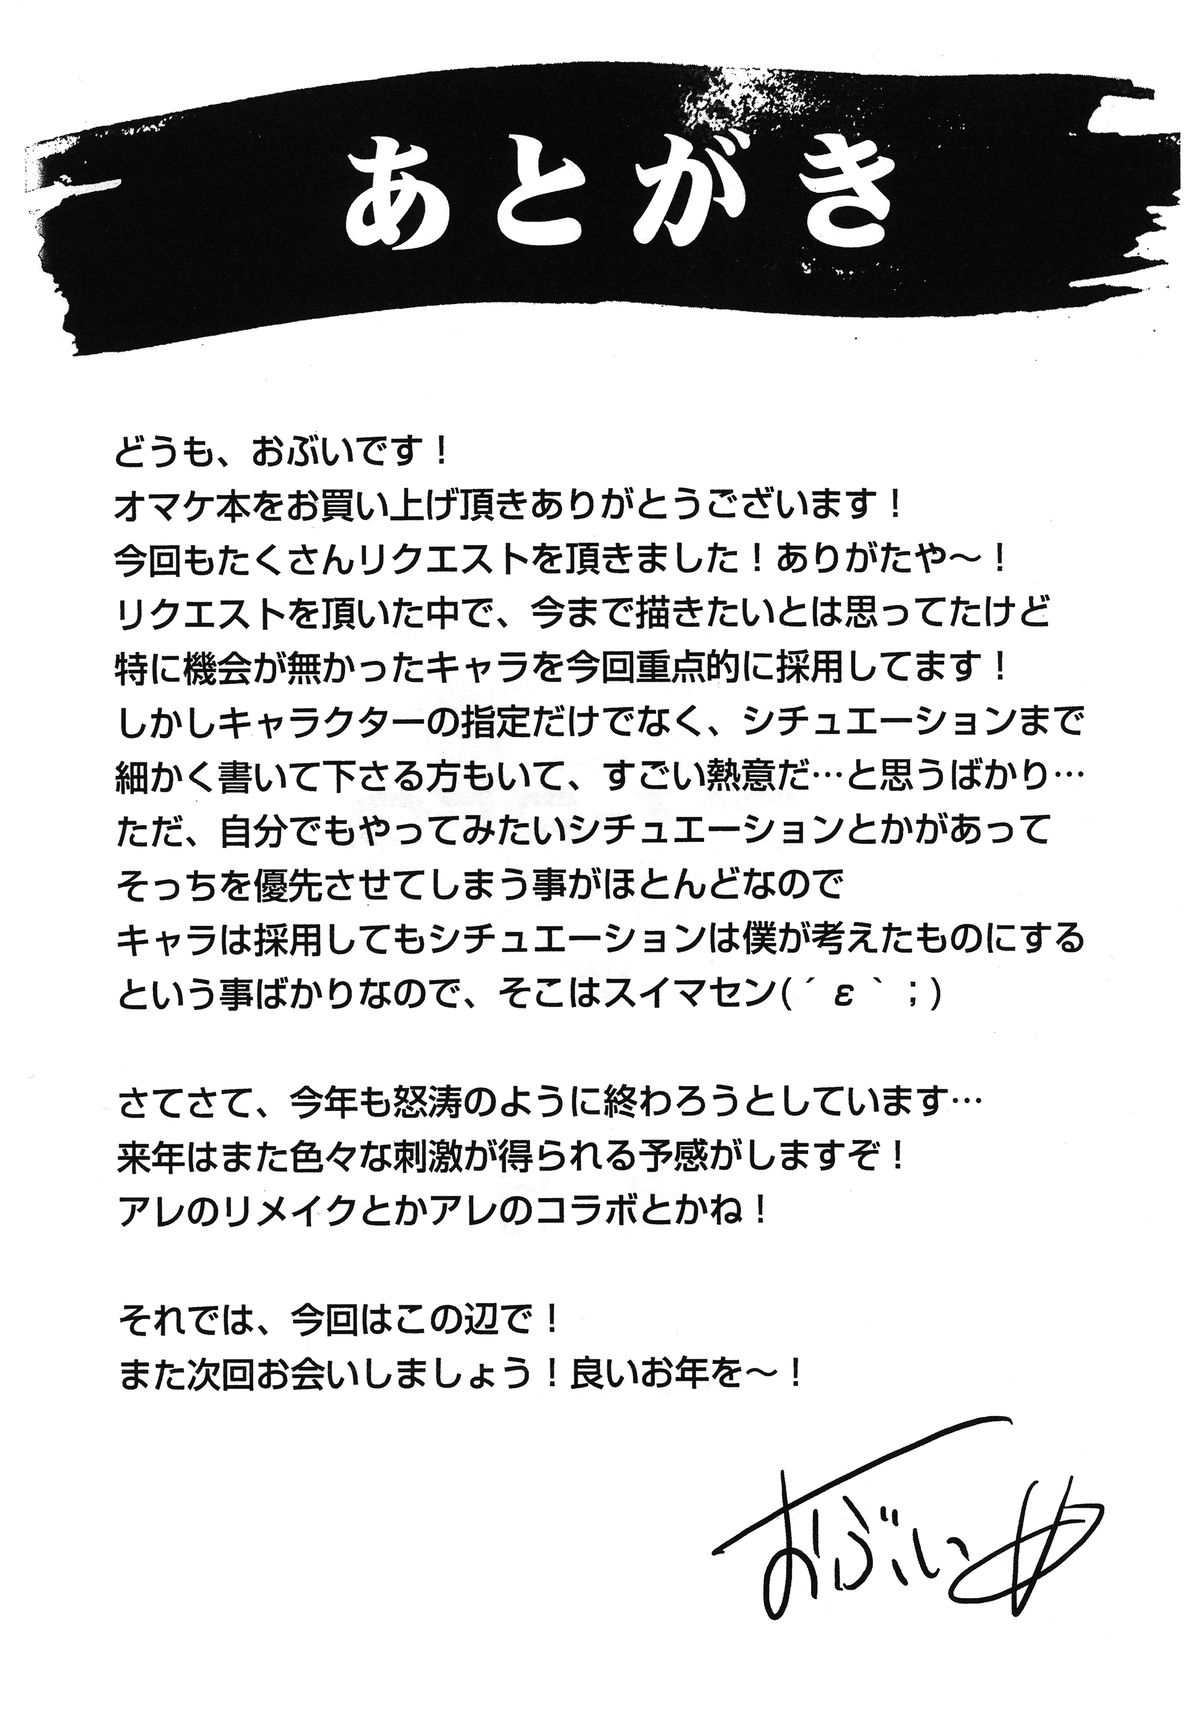 あとがき
どうも、おぶいです！
オマケ本をお買い上げ頂きありがとうございます！
今回もたくさんリクエストを頂きました！ありがたや～！
リクエストを頂いた中で、今まで描きたいとは思ってたけど
特に機会が無かったキャラを今回重点的に採用してます！
しかしキャラクターの指定だけでなく、シチュエーションまで
細かく書いて下さる方もいて、すごい熱意だ…と思うばかり…
ただ、自分でもやってみたいシチュエーションとかがあって
そっちを優先させてしまう事がほとんどなので
キャラは採用してもシチュエーションは僕が考えたものにする
という事ばかりなので、そこはスイマセン(´ε｀；)
さてさて、今年も怒涛のように終わろうとしています…
来年はまた色々な刺激が得られる予感がしますぞ！
アレのリメイクとかアレのコラボとかね！
それでは、今回はこの辺で！
また次回お会いしましょう！良いお年を～！
おぶい